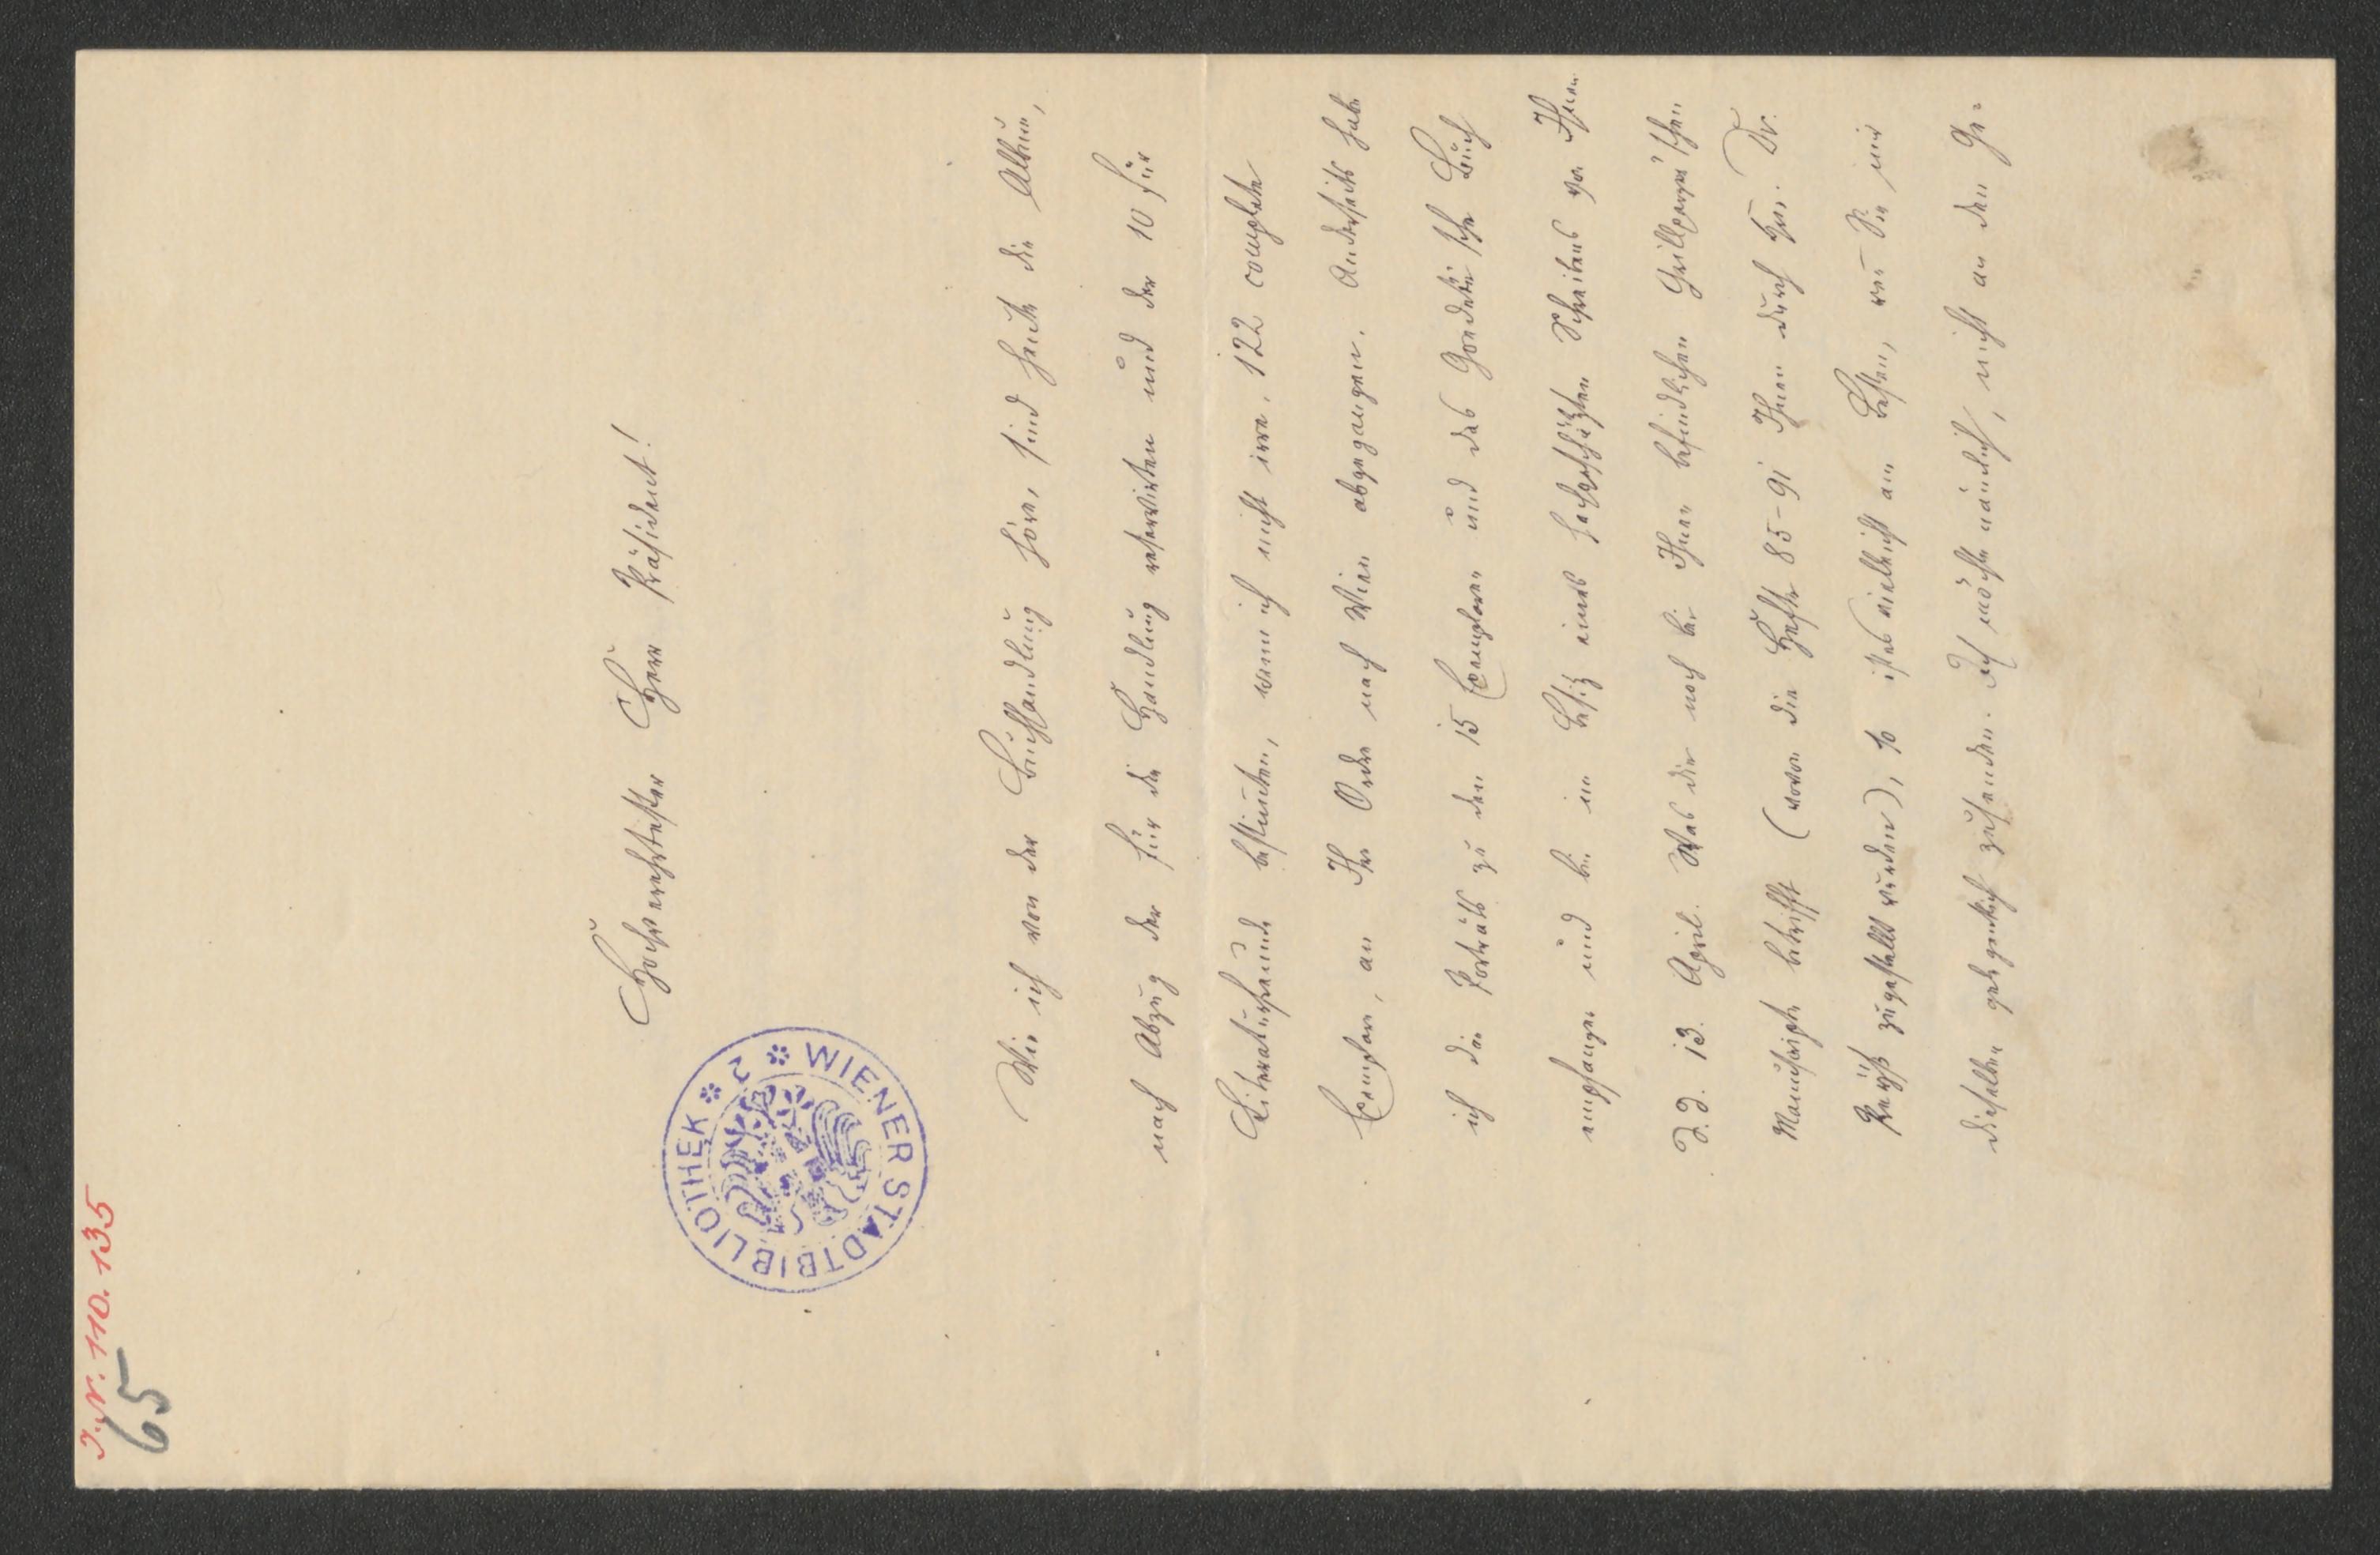 I.N. 110.135
65
WIENER STADTBIBLIOTHEK
Hochverehrtester Herr Präsident!
Wie ich von der Buchhandlung höre, sind heute die Album,
nach Abzug der für die Handlung reservirten und der 10 für
Literaturfreunde bestimmten, wenn ich nicht irre, 122 complete
Exemplare, an Ihre Ordre nach Wien abgegangen. Anderseits habe
ich die Porträts zu den 15 Exemplaren und das Goedeke'sche Buch
empfangen und bin im Besitz eines hochgeschätzten Schreibens von Ihnen
d.d. 13. April. Was die noch bei Ihnen befindlichen Grillparzer'schen
Manuscripte betrifft (wovon die Hefte 85-91 Ihnen durch Hrn. Dr.
zugestellt wurden), so ist es vielleicht am Besten, wenn Sie mir
dieselben gelegentlich zusenden. Ich möchte nämlich, nicht an den Ge-